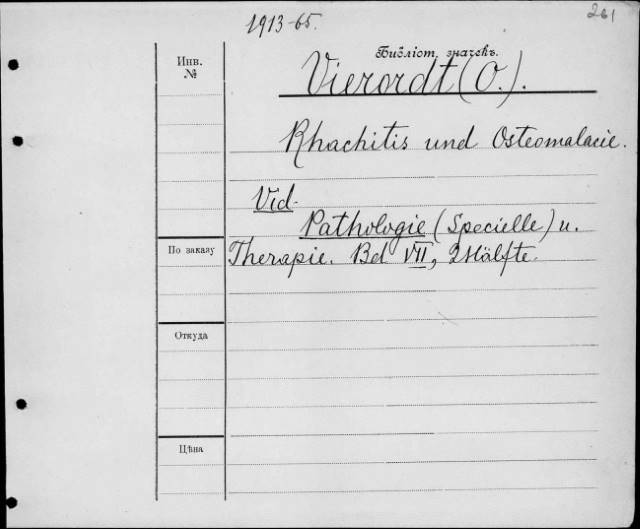 1913-65.
261
Инв.
№
Библіот. значекъ.
Vierordt (O.).
Rhachitis und Osteomalacie.
Vid.
Pathologie (Specielle) u.
По заказу
Therapie. Bd VII, 2 Hälfte.
Откуда
Цѣна